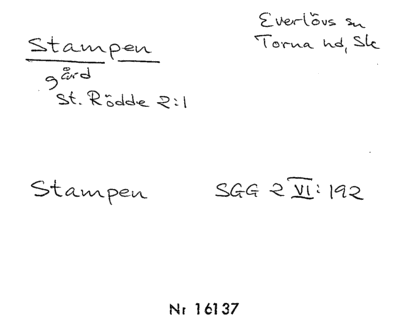 Everlövs sn
Stampen
Torna hd, Sk
gård
St. Rödde 2:1
Stampen SGG 2 VI: 192
Nr 16137